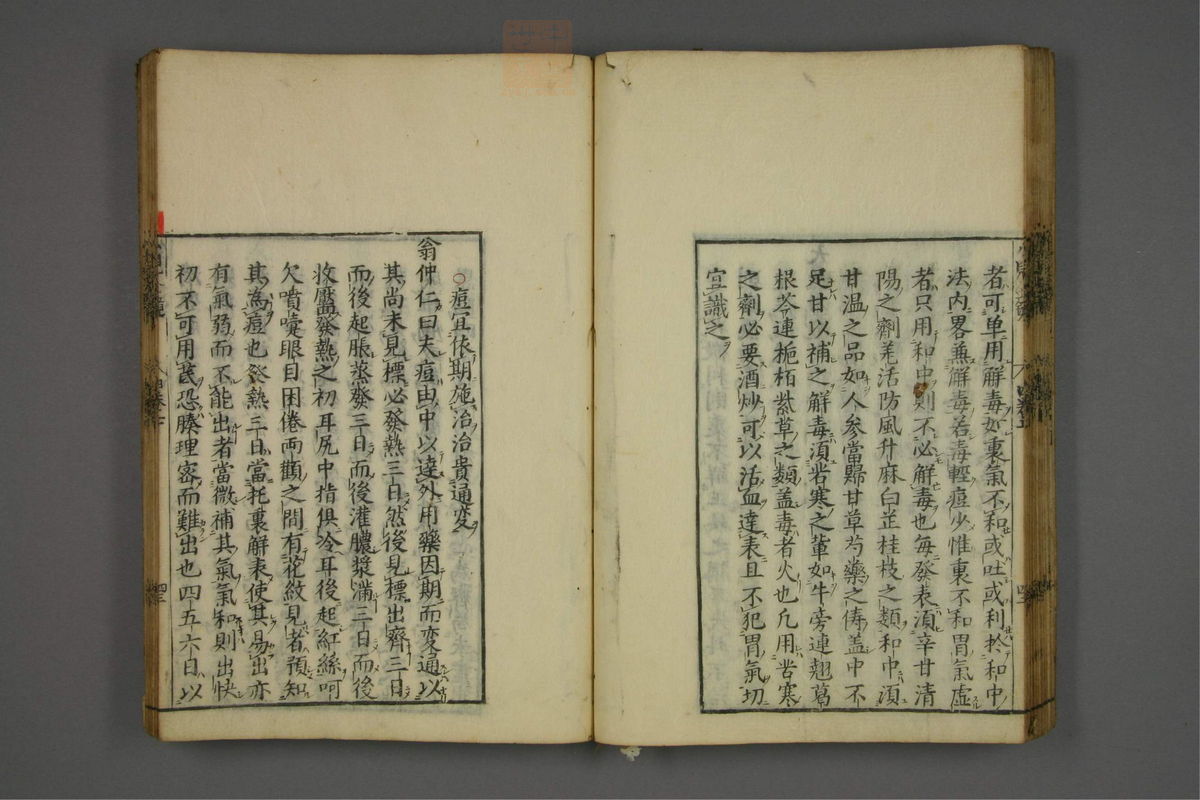 者可单用解毒如裏氣不和或吐或利於和中
法内畧兼解毒若毒輕痘少惟裏不和胃氣虚
者只用和中則不必解毒也每發表湏辛甘清
陽之劑羌活防風升麻白芷桂枝之類和中湏
甘温之品如人參當歸甘草芍藥之儔盖中不
足甘以補之解毒湏苦寒之軰如牛旁連翹葛
根芩連梔栢紫草之類盖毒者火也凢用苦寒
之劑必要酒炒可以活血達表且不犯胃氣切
宜識之
○痘宜依期施治治貴通変
翁仲仁曰夫痘由中以達外用藥因期而変通以
其尚未見標必發熱三日然後見標出齊三日
而後起脹蒸發三日而後灌膿漿滿三日而後
收靨發熱之初耳尻中指俱冷耳後起紅絲呵
欠噴嚏眼目困倦両顴之間有花紋見者預知
其為痘也發熱三日當托裏解表使其易出亦
有氣弱而不能出者當微補其氣氣和則出快
初不可用芪恐腠理密而難出也四五六日以